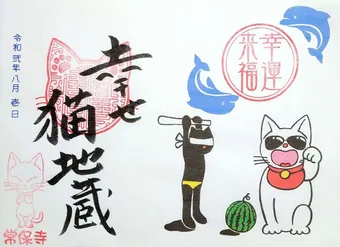 幸運
来福
幸せ
猫地蔵
令和弐年八月 壱日
常保寺